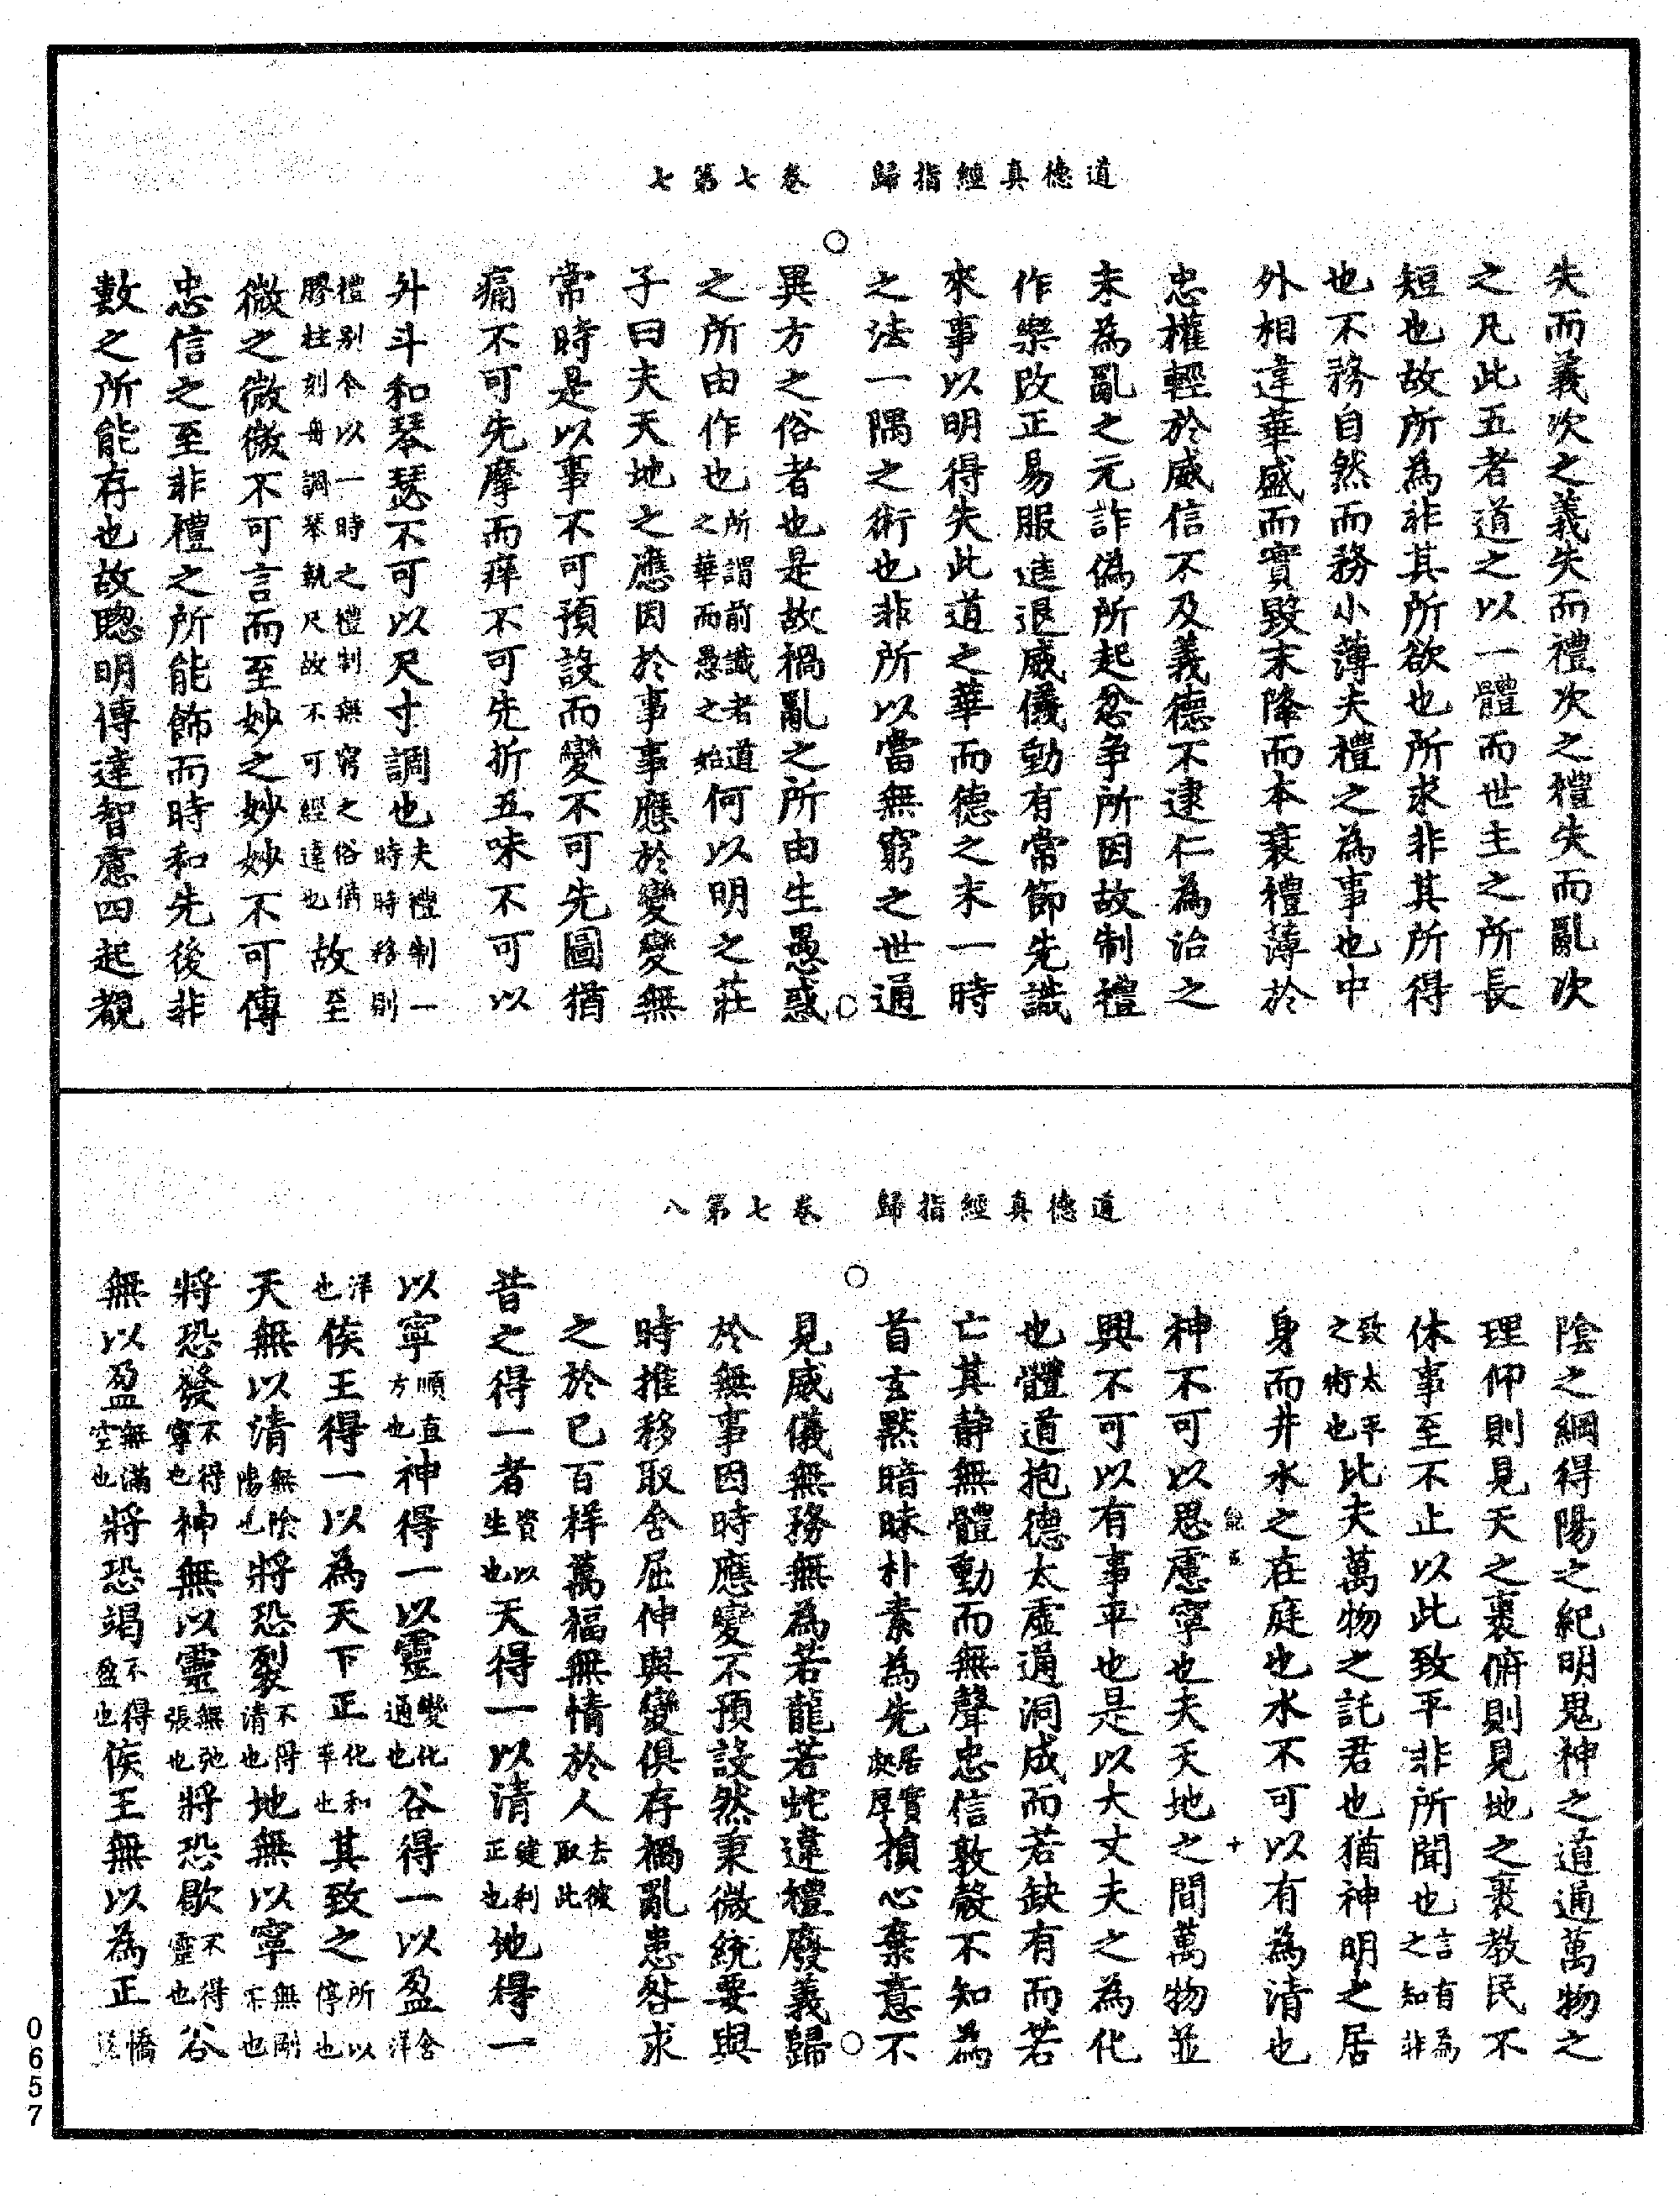 道德真經指歸　卷七第七
失而義次之義失而禮次之禮失而亂次
之凡此五者道之以一體而世主之所長
短也故所為非其所欲也所求非其所得
也不務自然而務小薄夫禮之為事也中
外相違華盛而實毀末降而本衰禮薄於
忠權輕於威信不及義德不逮仁為治之
末為亂之元詐偽所起忿争所因故制禮
作樂改正易服進退威儀動有常節先識
來事以明得失此道之華而德之末一時
之法一隅之術也非所以當無窮之世通
異方之俗者也是故禍亂之所由生愚惑
之所由作也所謂前識者道之華而愚之始何以明之莊
子曰夫天地之應因於事事應於變變無
常時是以事不可預設而變不可先圖猶
痛不可先摩而痒不可先折五味不可以
升斗和琴瑟不可以尺寸調也夫禮制一時時移則
禮别今以一時之禮制無窮之俗猶膠柱刻舟調琴執尺故不可經遠也故至
微之微微不可言而至妙之妙妙不可傳
忠信之至非禮之所能飾而時和先後非
數之所能存也故聰明傅達智慮四起覩
道德真經指歸　卷七第八
陰之綱得陽之紀明鬼神之道通萬物之
理仰則見天之裹俯則見地之裹教民不
休事至不止以此致平非所聞也言有為之知非
致太平之術也比夫萬物之託君也猶神明之居
身而井水之在庭也水不可以有為清也
神不可以思慮寧也夫天地之間萬物並
興不可以有事平也是以大丈夫之為化
也體道抱德太虛通洞成而若缺有而若
亡其静無體動而無聲忠信敦慤不知為
首玄默暗昧朴素為先居實處厚損心棄意不
見威儀無務無為若龍若蛇違禮廢義歸
於無事因時應變不預設然秉微統要與
時推移取舍屈伸與變俱存禍亂患咎求
之於已百祥萬福無情於人去彼取此
昔之得一者資以生也天得一以清健利正也地得一
以寧順直方也神得一以靈變化通也谷得一以盈含洋
洋也侯王得一以為天下正化和率也其致之所以停也
天無以清無陰陽也將恐裂不得清也地無以寧無剛柔也
將恐發不得寧也神無以靈無弛張也將恐歇不得靈也谷
無以盈無滿空也將恐竭不得盈也侯王無以為正憍
0657